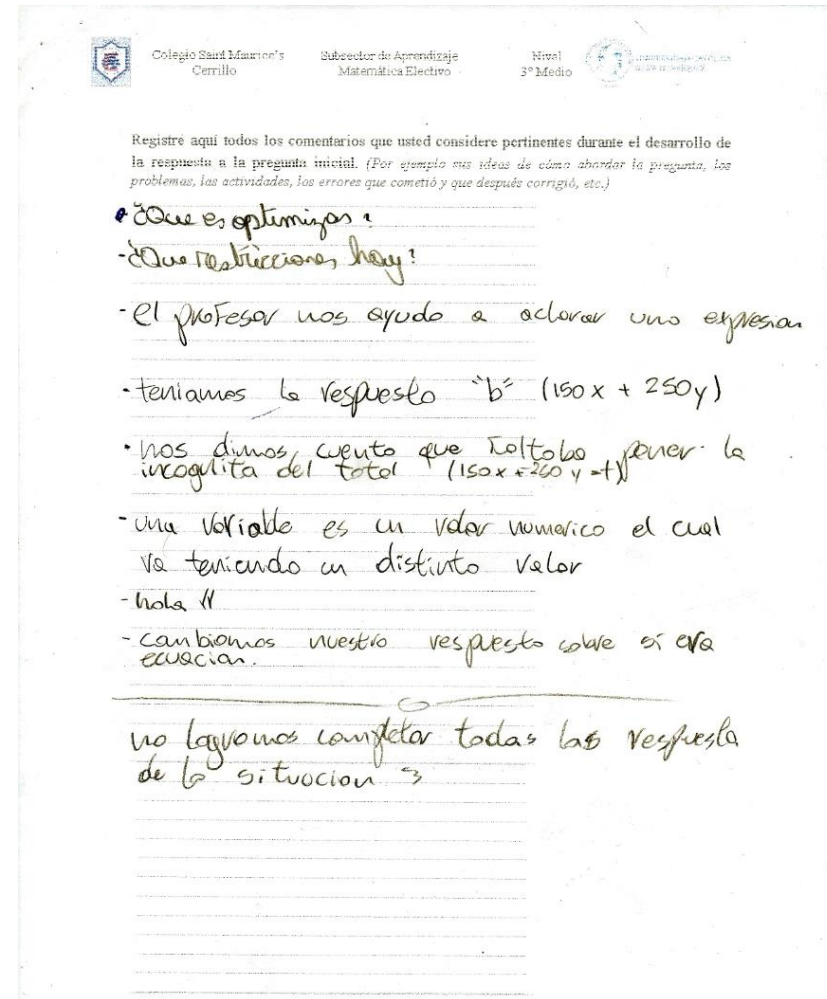 Colegio Saint Maurice's
Cerrillo
Subsector de Aprendizaje
Matemática Electivo
Nivel
3º Medio
Registre aquí todos los comentarios que usted considere pertinentes durante el desarrollo de
la respuesta a la pregunta inicial. (Por ejemplo sus ideas de cómo abordar la pregunta, los
problemas, las actividades, los errores que cometió y que después corrigió, etc.)
• ¿Que es optimizar?
- ¿Que restricciones hay?
- el profesor nos ayudo a aclarar una expresion
- teniamos la respuesta "b" (150x + 250y)
• nos dimos cuenta que faltaba poner la
incognita del total (150x + 260y = t)
- una variable es un valor numerico el cual
va teniendo un distinto valor
- hola !!
- cambiamos nuestra respuesta sobre si era
ecuacion.
no logramos completar todas las respuesta
de la situacion 3